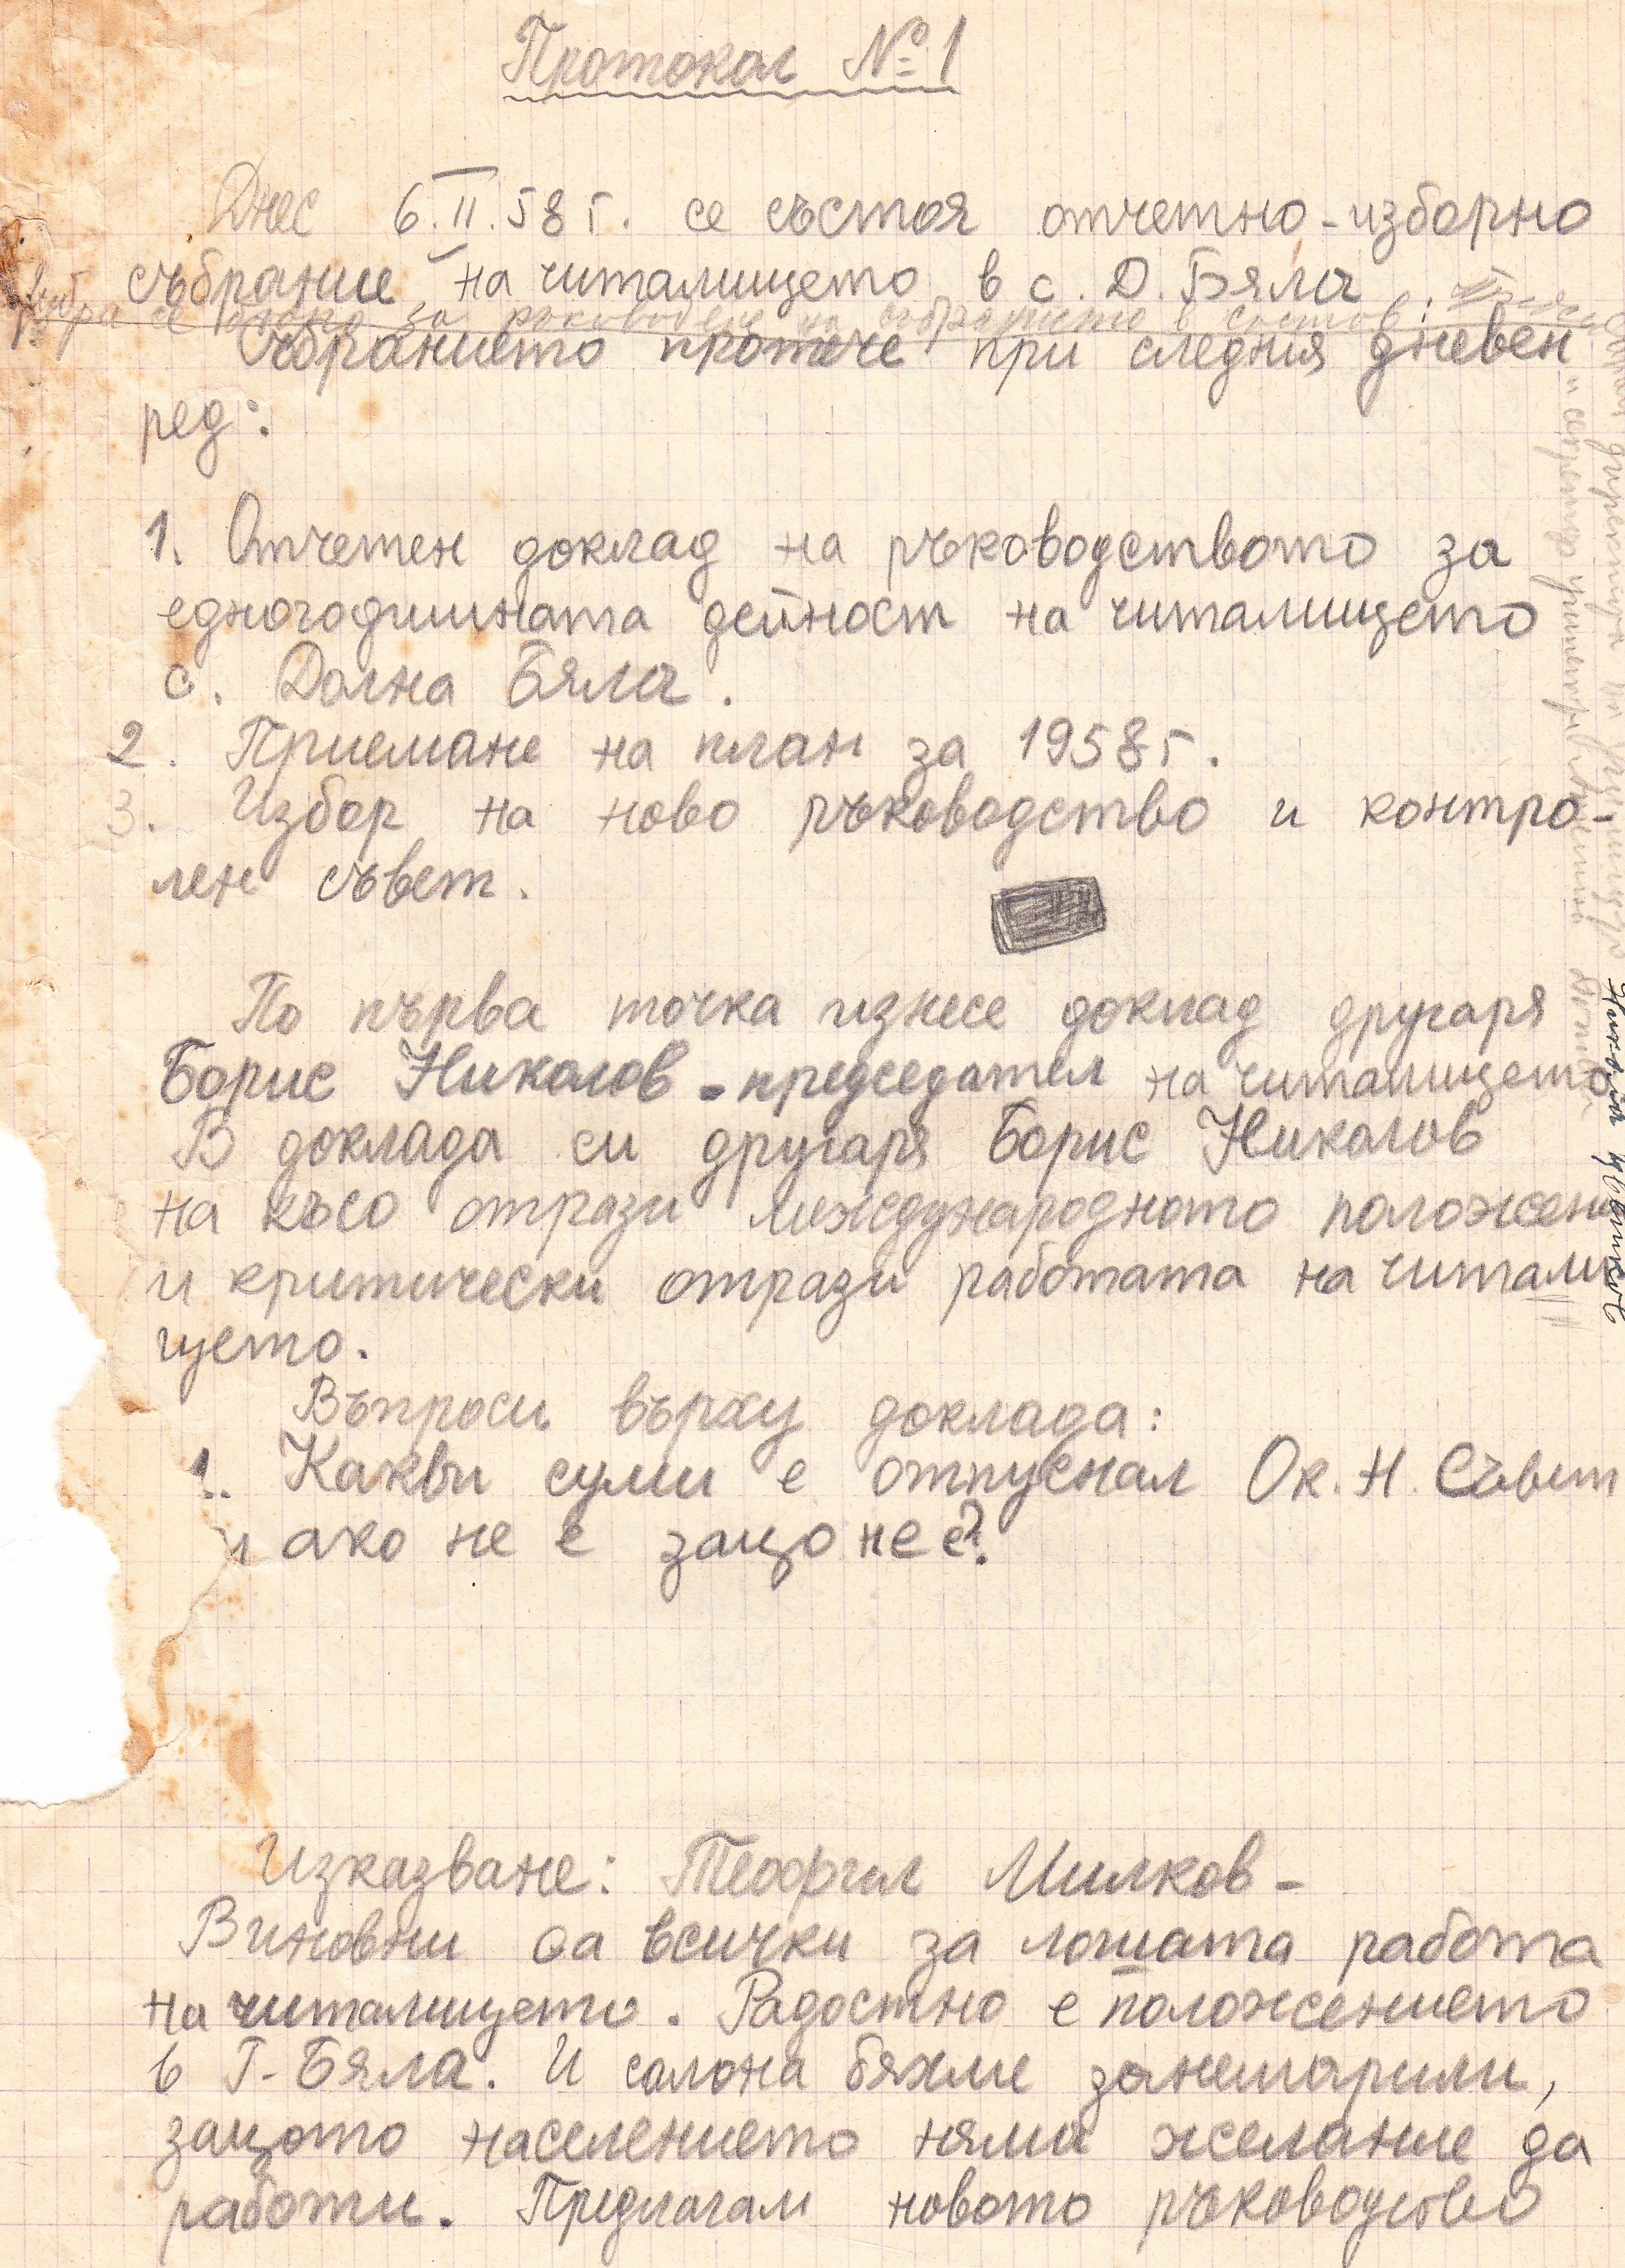 Протокол № 1
Днес 6.II.58 г. се състоя отчетно-изборно
събрание на читалището в с. Д. Бяла.
избра се бюро за ръководене на събранието в състав:
Събранието протече при следния дневен
ред:
1. Отчетен доклад на ръководството за
едногодишната дейност на читалището
с. Долна Бяла.
2. Приемане на план за 1958 г.
3. Избор на ново ръководство и контро-
лен съвет.
По първа точка изнесе доклад другаря
Борис Николов - председател на читалището
В доклада си другаря Борис Николов
на късо отрази международното положени
и критически отрази работата на читали
щето.
Въпроси върху доклада:
1. Какви суми е отпуснал Ок. Н. Съвет
и ако не е защо не е?
Изказване: Теофил Милков -
Виновни са всички за лошата работа
на читалището. Радостно е положението
в Г. Бяла. И салона бяхме занемарили,
защото населението няма желание да
работи. Предлагам новото ръководство
директора на училището
и секретар